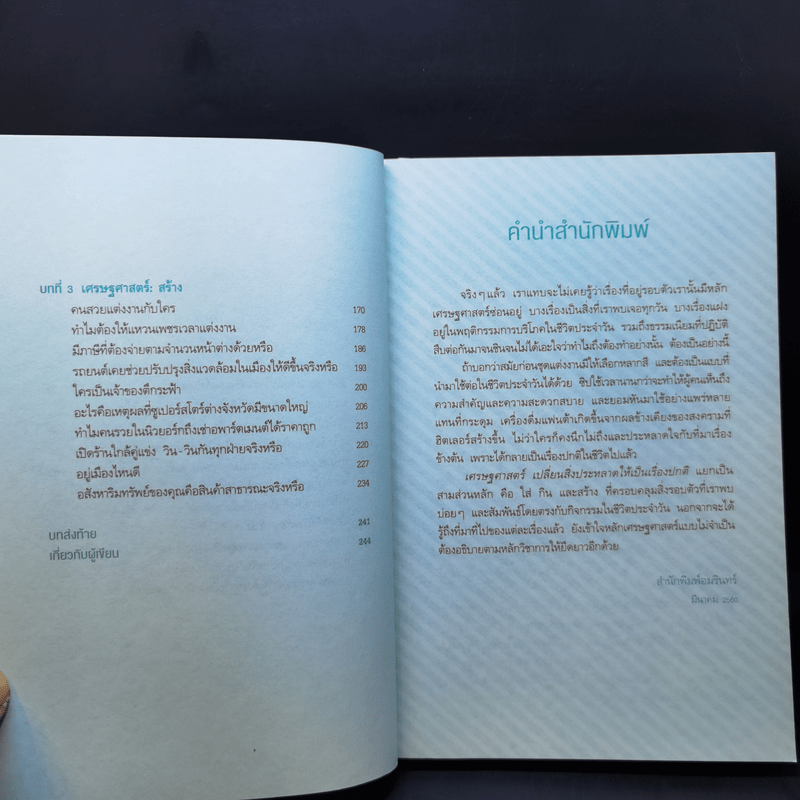 บทที่ 3 เศรษฐศาสตร์: สร้าง
คนสวยแต่งงานกับใคร 170
ทำไมต้องให้แหวนเพชรเวลาแต่งงาน 178
มีภาษีที่ต้องจ่ายตามจำนวนหน้าต่างด้วยหรือ 186
รถยนต์เคยช่วยปรับปรุงสิ่งแวดล้อมในเมืองให้ดีขึ้นจริงหรือ 193
ใครเป็นเจ้าของตึกระฟ้า 200
อะไรคือเหตุผลที่ซูเปอร์สโตร์ต่างจังหวัดมีขนาดใหญ่ 206
ทำไมคนรวยในนิวยอร์กถึงเช่าอพาร์ตเมนต์ได้ราคาถูก 213
เปิดร้านใกล้คู่แข่ง วิน-วินกันทุกฝ่ายจริงหรือ 220
อยู่เมืองไหนดี 227
อสังหาริมทรัพย์ของคุณคือสินค้าสาธารณะจริงหรือ 234
บทส่งท้าย 241
เกี่ยวกับผู้เขียน 244
คำนำสำนักพิมพ์
จริงๆ แล้ว เราแทบจะไม่เคยรู้ว่าเรื่องที่อยู่รอบตัวเรานั้นมีหลัก
เศรษฐศาสตร์ซ่อนอยู่ บางเรื่องเป็นสิ่งที่เราพบเจอทุกวัน บางเรื่องแฝง
อยู่ในพฤติกรรมการบริโภคในชีวิตประจำวัน รวมถึงธรรมเนียมที่ปฏิบัติ
สืบต่อกันมาจนชินจนไม่ได้เอะใจว่าทำไมถึงต้องทำอย่างนั้น ต้องเป็นอย่างนี้
ถ้าบอกว่าสมัยก่อนชุดแต่งงานมีให้เลือกหลากสี และต้องเป็นแบบที่
นำมาใช้ต่อในชีวิตประจำวันได้ด้วย ซิปใช้เวลานานกว่าจะทำให้ผู้คนเห็นถึง
ความสำคัญและความสะดวกสบาย และยอมหันมาใช้อย่างแพร่หลาย
แทนที่กระดุม เครื่องดื่มแฟนต้าเกิดขึ้นจากผลข้างเคียงของสงครามที่
ฮิตเลอร์สร้างขึ้น ไม่ว่าใครก็คงนึกไม่ถึงและประหลาดใจกับที่มาเรื่อง
ข้างต้น เพราะได้กลายเป็นเรื่องปกติในชีวิตไปแล้ว
เศรษฐศาสตร์ เปลี่ยนสิ่งประหลาดให้เป็นเรื่องปกติ แยกเป็น
สามส่วนหลัก คือ ใส่ กิน และสร้าง ที่ครอบคลุมสิ่งรอบตัวที่เราพบ
บ่อยๆ และสัมพันธ์โดยตรงกับกิจกรรมในชีวิตประจำวัน นอกจากจะได้
รู้ถึงที่มาที่ไปของแต่ละเรื่องแล้ว ยังเข้าใจหลักเศรษฐศาสตร์แบบไม่จำเป็น
ต้องอธิบายตามหลักวิชาการให้ยืดยาวอีกด้วย
สำนักพิมพ์อมรินทร์
มีนาคม 2560